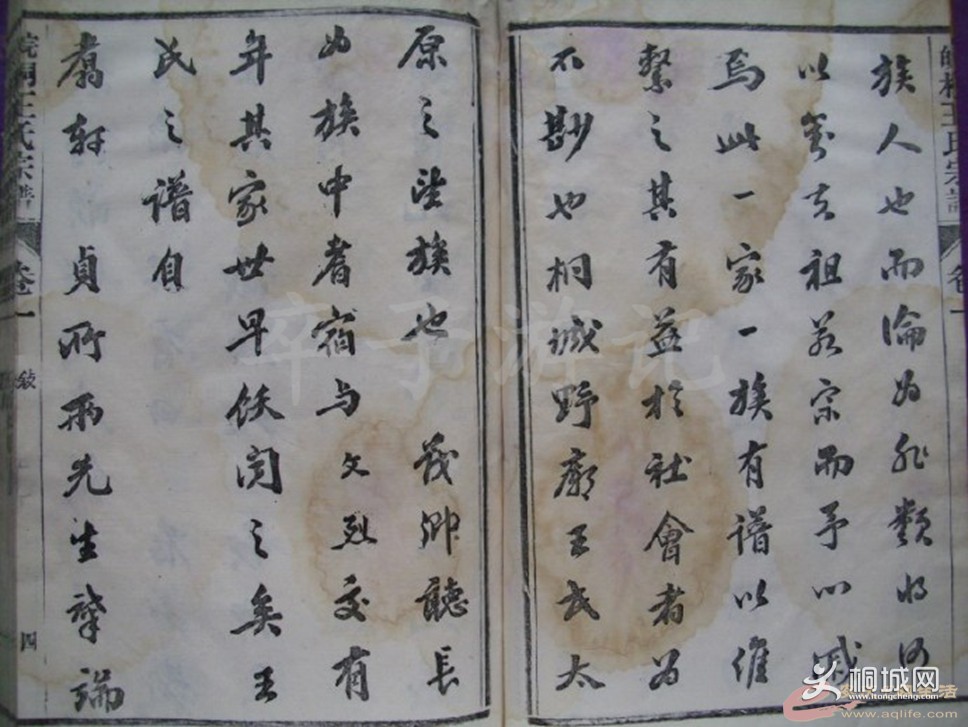 皖桐王氏宗譜 卷一
族人也而淪為非類將何
以其祖若宗而予以
焉此一家一族有譜以維
繫之其有益於社會者為
不尠也桐城野廟王氏太
原之望族也 茂卿聽長
為族中耆宿與文烈交有
年其家世早飫聞之矣王
氏之譜自
軒貞所兩先生肇端
皖桐王氏宗譜 卷一 敘 四
辛子游记
桐城网
www.itongcheng.com
生活
www.aqlife.com